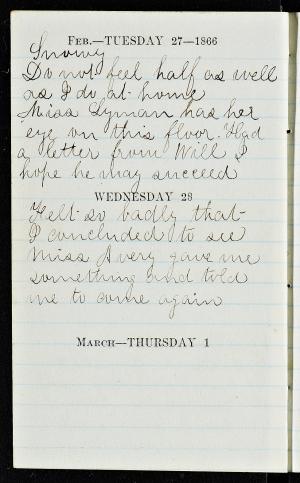 Feb.—TUESDAY 27—1866
Snowy
Do not feel half as well
as I do at home
Miss Lyman has her
eye on this floor. Had
a letter from Will I
hope he may succeed
WEDNESDAY 28
Felt so badly that
I concluded to see
Miss Avery gave me
something and told
me to come again
March—THURSDAY 1